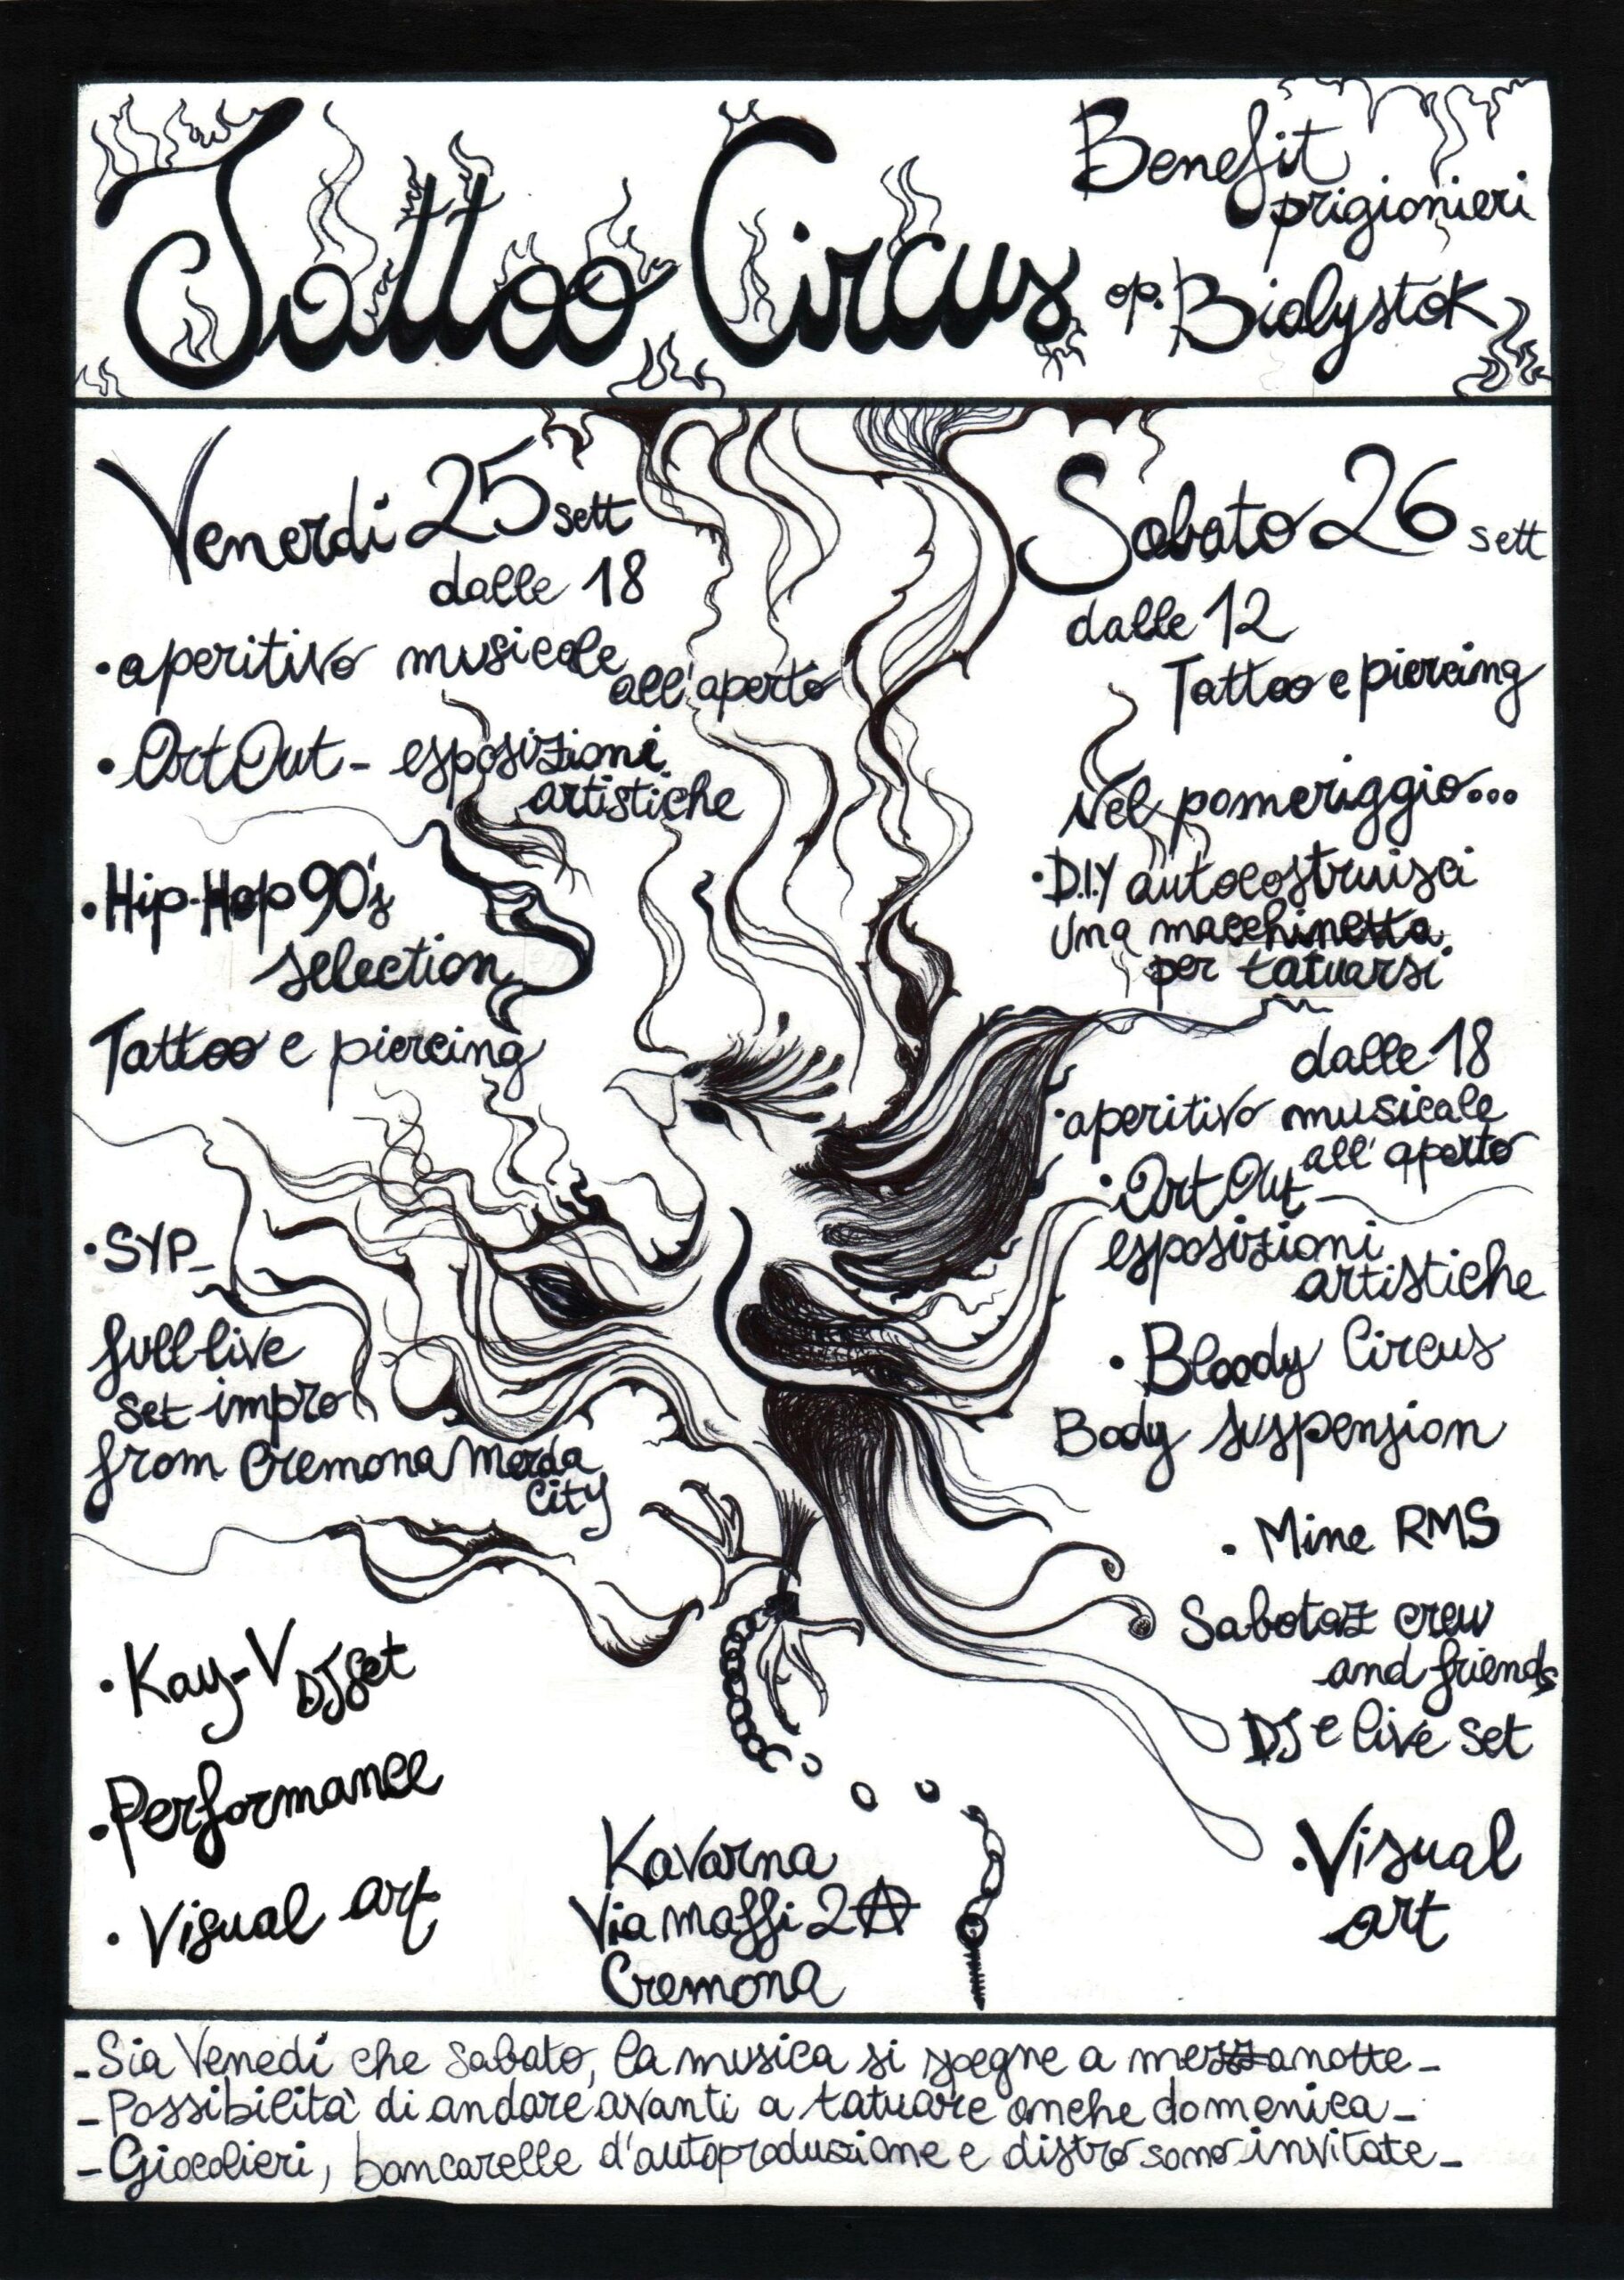 Tattoo Circus
Benefit
prigionieri
op. Bialystok
Venerdi 25 sett
dalle 18
• aperitivo musicale
all'aperto
• Art Out - esposizioni
artistiche
• Hip-Hop 90's
selection
Tattoo e piercing
• SYP_
full live
set impro
from Cremona Merda
City
• Kay-V DJ set
• Performance
• Visual art
Sabato 26 sett
dalle 12
Tattoo e piercing
Nel pomeriggio...
• D.I.Y autocostruisci
una macchinetta
per tatuarsi
dalle 18
• aperitivo musicale
all'aperto
• Art Out -
esposizioni
artistiche
• Bloody Circus
Body suspension
• Mine RMS
Sabotaz crew
and friends
DJ e live set
• Visual
art
Kavarna
Via Maffi 2A
Cremona
- Sia Venedi che sabato, la musica si spegne a mezzanotte -
- Possibilità di andare avanti a tatuare anche domenica -
- Giocolieri, bancarelle d'autoproduzione e distro sono invitate -